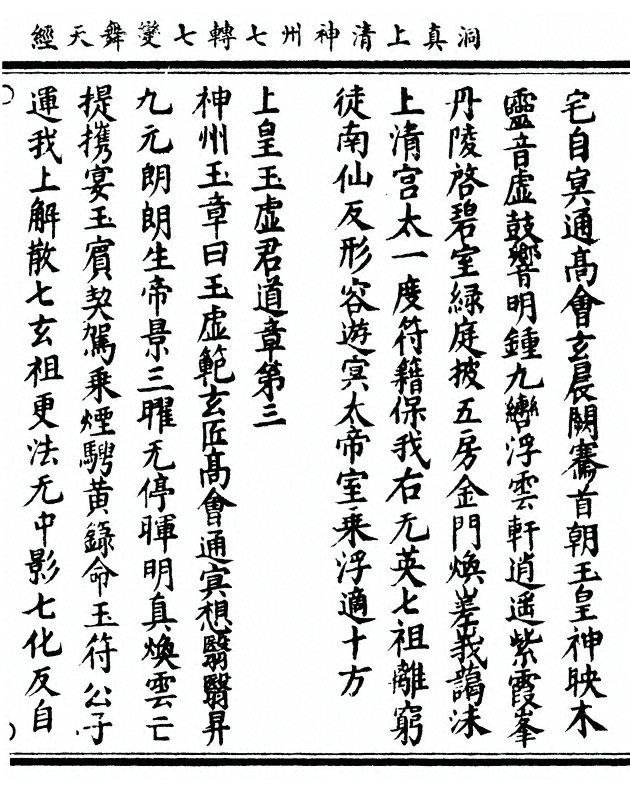 洞真上清神州七轉七變舞天經
宅自冥通髙會玄晨闕騫首朝玉皇神映木
靈音虛鼓響明鍾九轡浮雲軒逍遥紫霞峯
丹陵啓碧室緑庭披五房金門煥嵳峩藹沫
上清宫太一度符籍保我右无英七祖離窮
徒南仙反形容遊冥太帝室乗浮適十方
上皇玉虛君道章第三
神州玉章曰玉虛範玄匠髙會通冥想翳翳昇
九元朗朗生帝景三曜无停暉明真煥雲亡
提携宴玉賔契駕乗煙騁黄籙命玉符公子
運我上解散七玄祖更法无中影七化反自